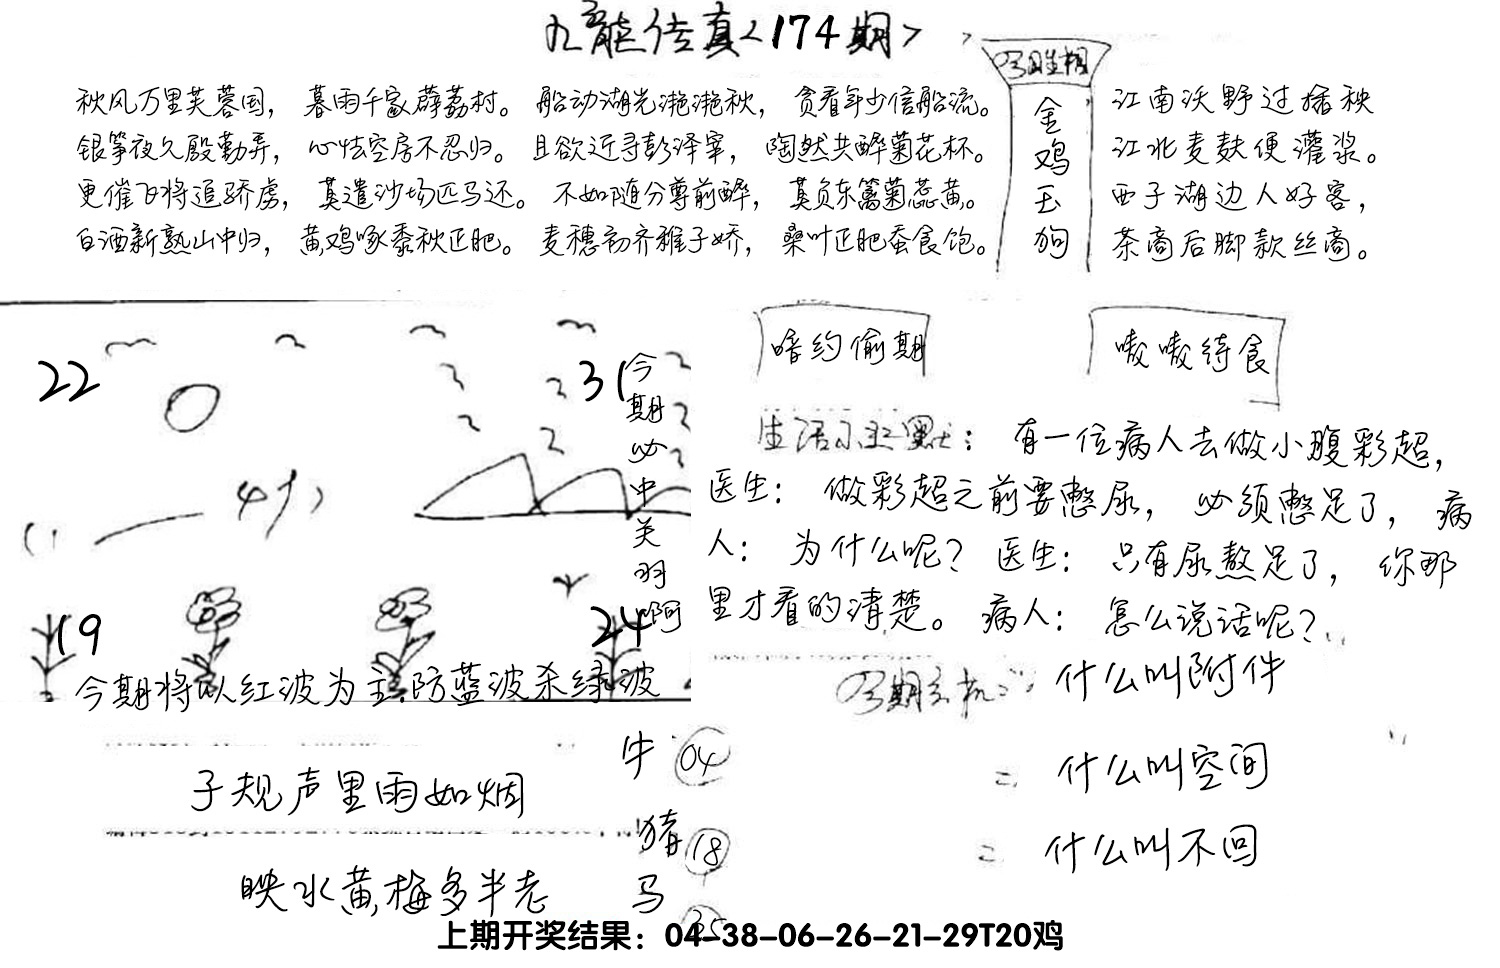 九龙传真<174期>
秋风万里芙蓉国，暮雨千家薜荔村。船动湖光滟滟秋，贪看年少信船流。
银筝夜久殷勤弄，心怯空房不忍归。且欲近寻彭泽宰，陶然共醉菊花杯。
更催飞将追骄虏，莫遣沙场匹马还。不如随分尊前醉，莫负东篱菊蕊黄。
白酒新熟山中归，黄鸡啄黍秋正肥。麦穗初齐稚子娇，桑叶正肥蚕食饱。
金鸡玉狗
江南沃野过插秧
江北麦麸便灌浆。
西子湖边人好客，
茶商后脚款丝商。
22
31
今期必中关羽啊
19
24
今期将以红波为主.防蓝波杀绿波
暗约偷期
嗷嗷待食
生活小幽默：有一位病人去做小腹彩超，
医生：做彩超之前要憋尿，必须憋足了，病
人：为什么呢？医生：只有尿熬足了，你那
里才看的清楚。病人：怎么说话呢？
什么叫附件
= 什么叫空间
= 什么叫不回
子规声里雨如烟
映水黄梅多半老
牛 04
猪 18
马 35
上期开奖结果：04-38-06-26-21-29T20鸡